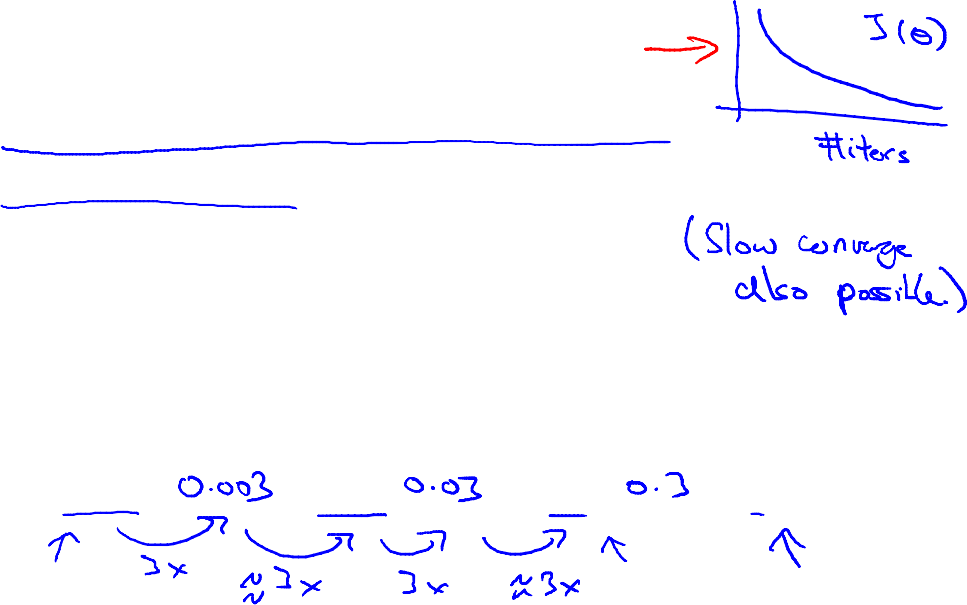 J(θ)
#iters
(Slow converge
also possible.)
0.003 0.03 0.3
3x ≈3x 3x ≈3x